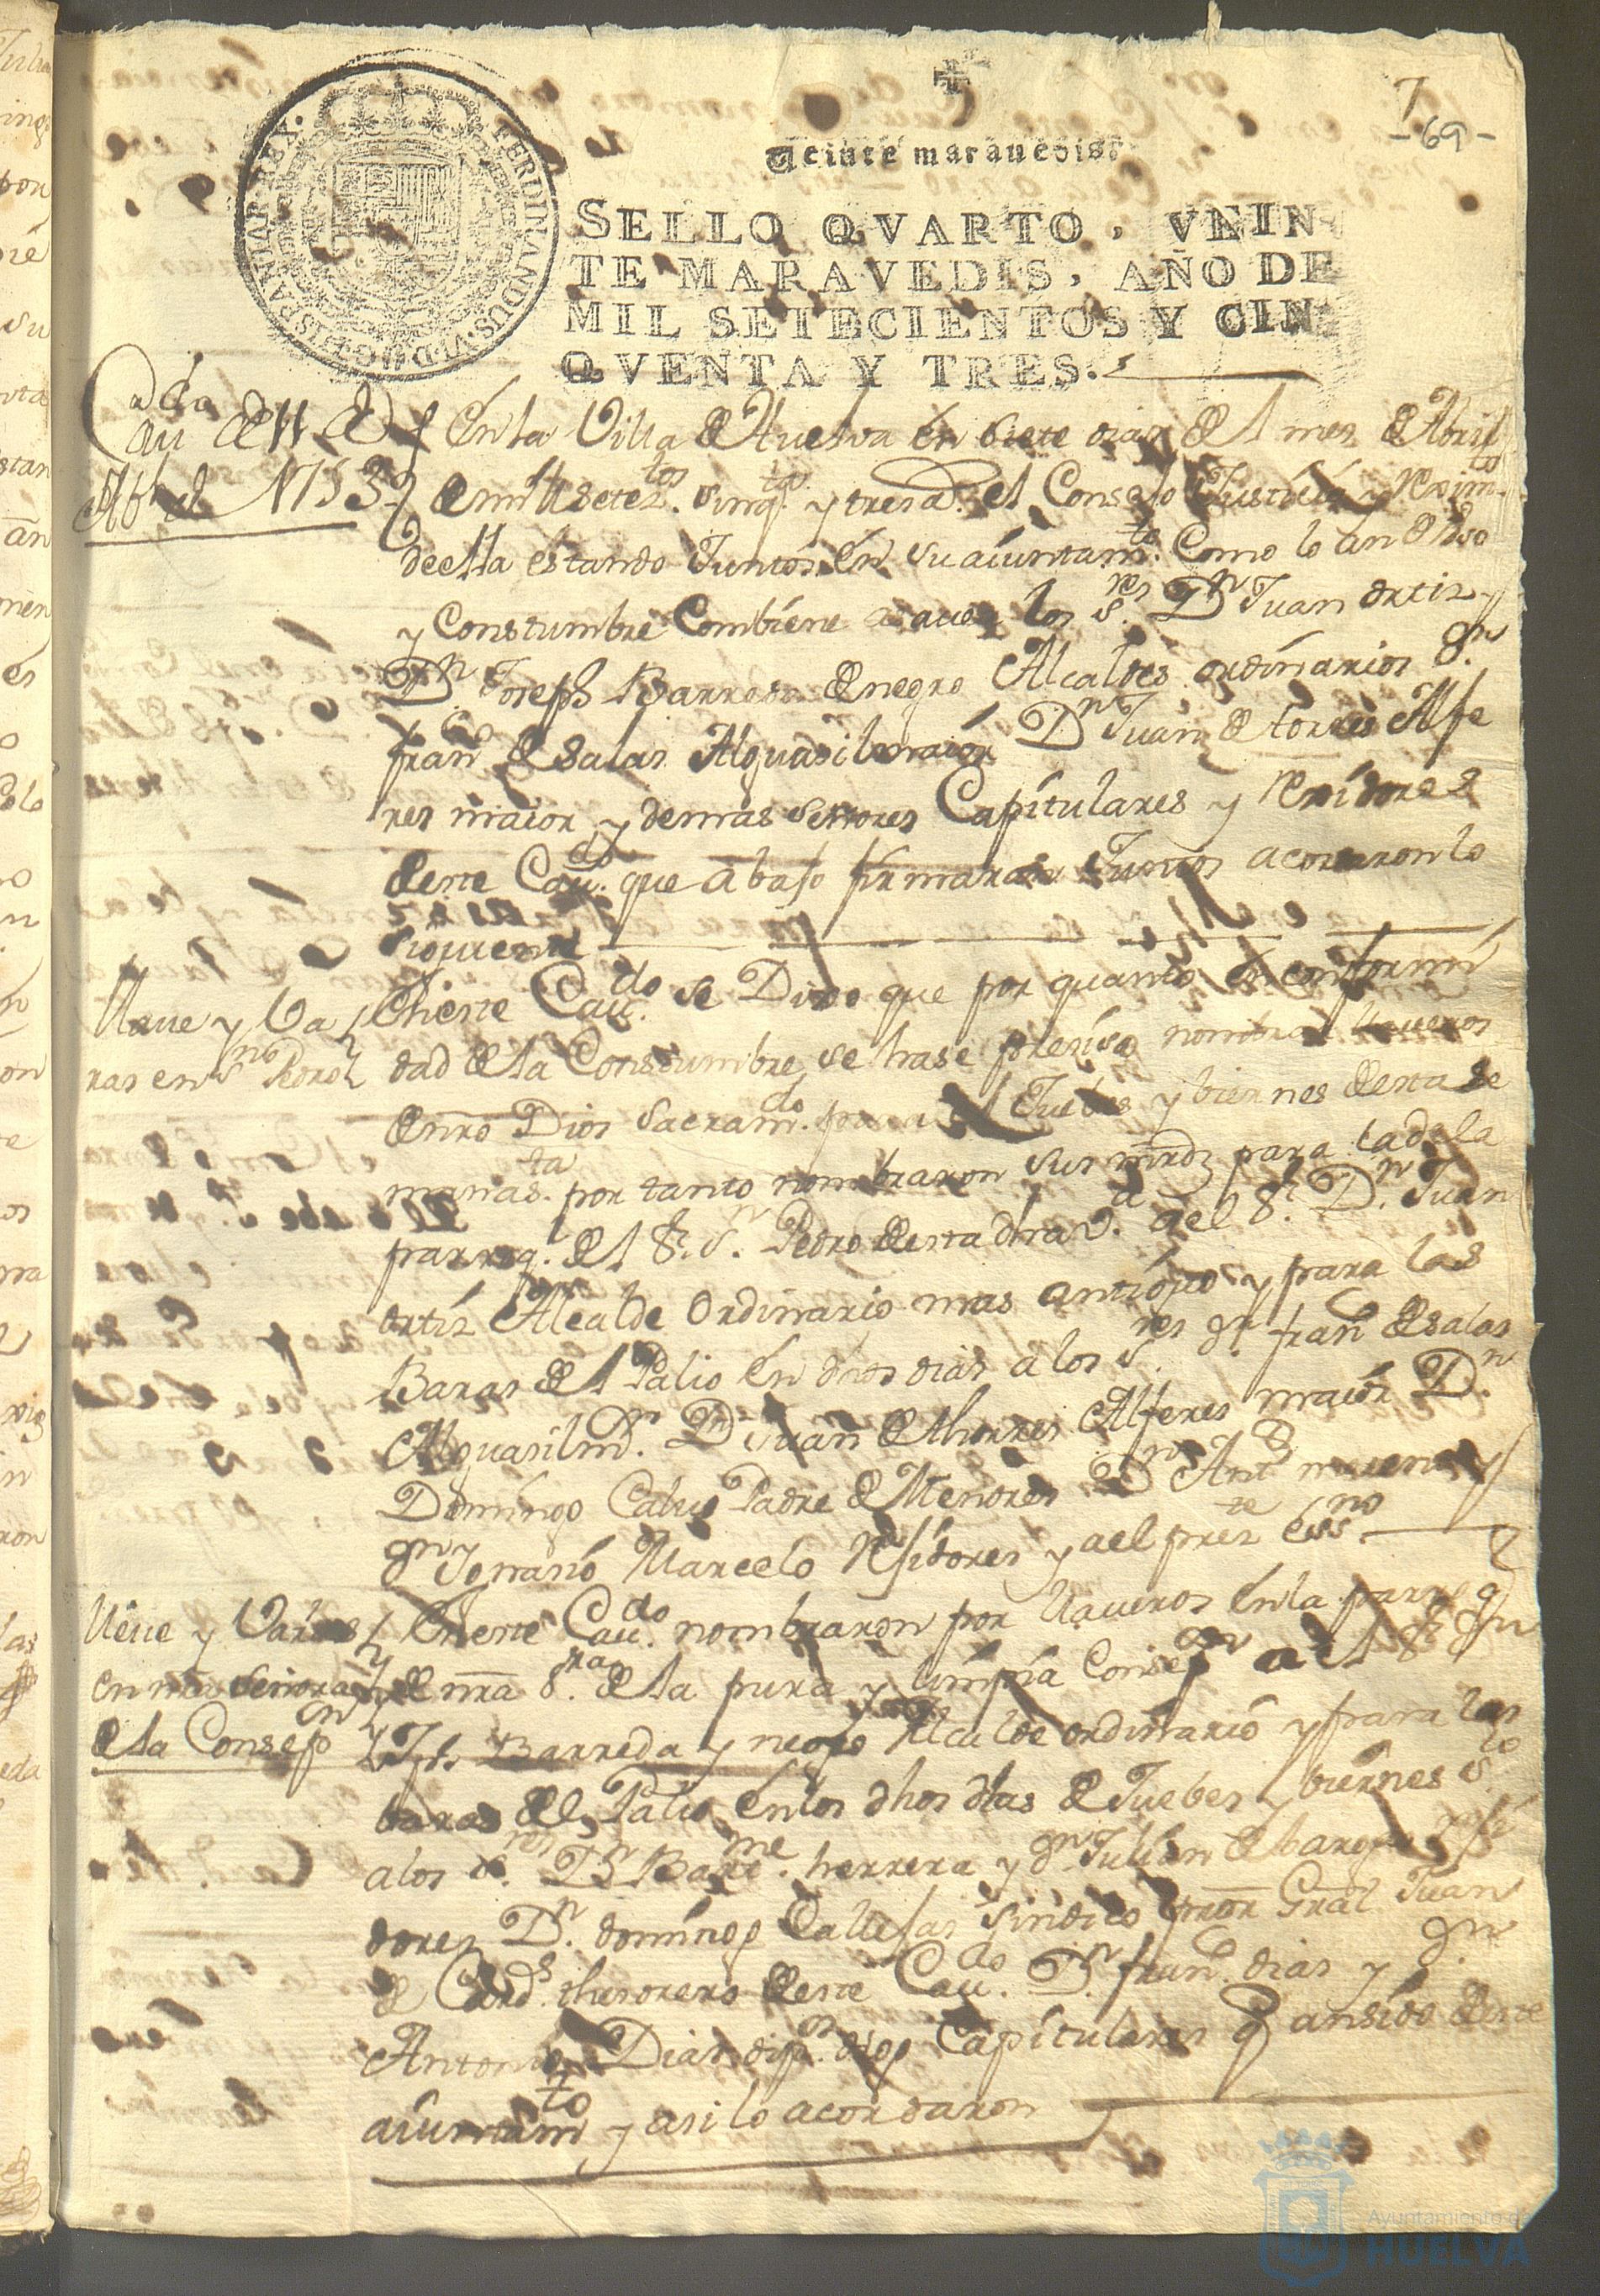 7
-69-
Veinte maravedis.
SELLO QVARTO, VEIN-
TE MARAVEDIS, AÑO DE
MIL SETECIENTOS Y CIN-
QVENTA Y TRES.
FERDINANDUS. VI. D. G. HISPANIAR. REX.
Cau.do de
Abril 1753
En la Villa de Huelva en siete dias del mes de Abril
de mill setez.tos sinq.ta y tres a.s el Consejo Justicia y Reximto
de ella estando Juntos en su aiuntam.to Como lo an de uso
y Constumbre Combiene a saver los S.res Dn Juan ortiz y
Dn Joseph Barreda negro Alcaldes ordinarios Dn
fran.co de Salas Alguasil maior Dn Juan de torres Alfe
res maior y demas Señores Capitulares y Rexidores
deste Cau.do que abajo firmaran Juntos acordaron lo
siguiente
Llave y Va
ras en Sn Pedro
En este Cau.do se Dixo que por quanto en conformi
dad de la Constumbre se hase presiso nombrar llaveros
de nro Dios Sacram.do para el Juebes y biernes desta se
mana s.ta por tanto nombraron sus mrds para la de la
parroq. del Sr. S.n Pedro desta dha V.a a el Sr. Dn. Juan
ortiz Alcalde Ordinario mas antiguo y para las
Baras del Palio en dhos dias a los S.res Dn fran.co de Salas
Alguasil m.r Dn Juan de thorres Alferes maior Dn.
Domingo Calvo Padre de Menores Dn Ant.o y
Dn Ignasio Marcelo Rejidores y a el prez.te Ess.no
Llave y Varas
en nra Señora
de la Consepn
En este Cau.do nombraron por llaveros en la parroq
de nra S.ra de la pura y limpia Consepn a el Sr Dn
Jph. Barreda y negro Alcalde ordinario y para las
baras del Palio en los dhos dias de Juebes y biernes S.to
a los S.res Dn Bart.me herrera y Dn Julian Reji
dores Dn. domingo Callejas Sindico Pror Gral Juan
de Cord.s thesorero deste Cau.do Dn. fran.co dias y Dn
Antonio Dias Capitulares q an sido deste
aiuntam.to y asi lo acordaron
Ayuntamiento de
HUELVA